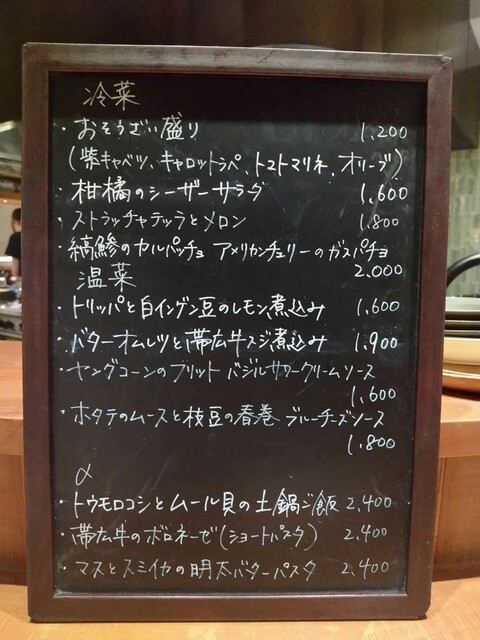 冷菜
・おそうざい盛り 1,200
(紫キャベツ、キャロットラペ、トマトマリネ、オリーブ)
・柑橘のシーザーサラダ 1,600
・ストラッチャテッラとメロン 1,800
・縞鯵のカルパッチョ アメリカンチェリーのガスパチョ
2,000
温菜
・トリッパと白インゲン豆のレモン煮込み 1,600
・バターオムレツと帯広牛スジ煮込み 1,900
・ヤングコーンのフリット バジルサワークリームソース
1,600
・ホタテのムースと枝豆の春巻 ブルーチーズソース
1,800
〆
・トウモロコシとムール貝の土鍋ご飯 2,400
・帯広牛のボロネーゼ(ショートパスタ) 2,400
・マスとスミイカの明太バターパスタ 2,400